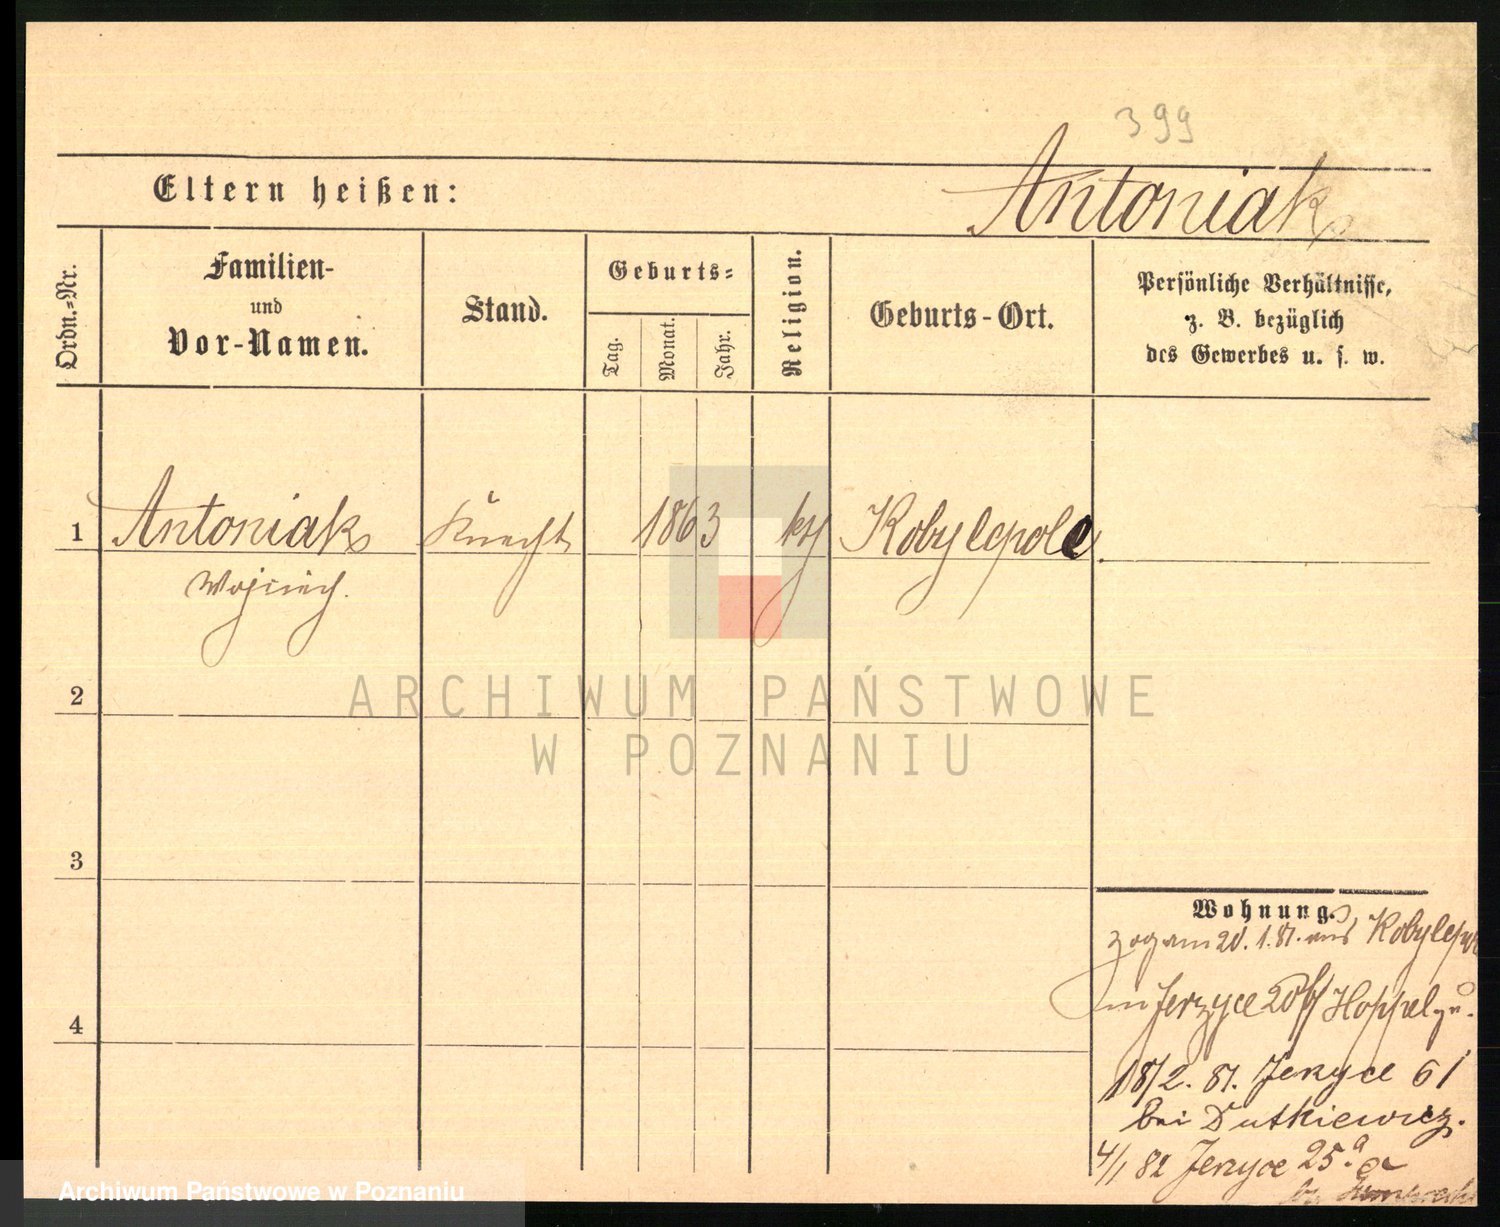 399
Eltern heißen:
Antoniak
Ordn.-Nr.
Familien-
und
Vor-Namen.
Stand.
Geburts-
Tag.
Monat.
Jahr.
Religion.
Geburts-Ort.
Persönliche Verhältnisse,
z. B. bezüglich
des Gewerbes u. s. w.
1 Antoniak Knecht 1863 Kobylepole
Wojciech.
2
ARCHIWUM PAŃSTWOWE
W POZNANIU
3
4
Wohnung.
zog am 20.1.81. aus
in Jerzyce Hoppel zu.
18/2. 81. Jerzyce 61
bei Dutkiewicz.
4/1 82 Jerzyce 25.a
Archiwum Państwowe w Poznaniu